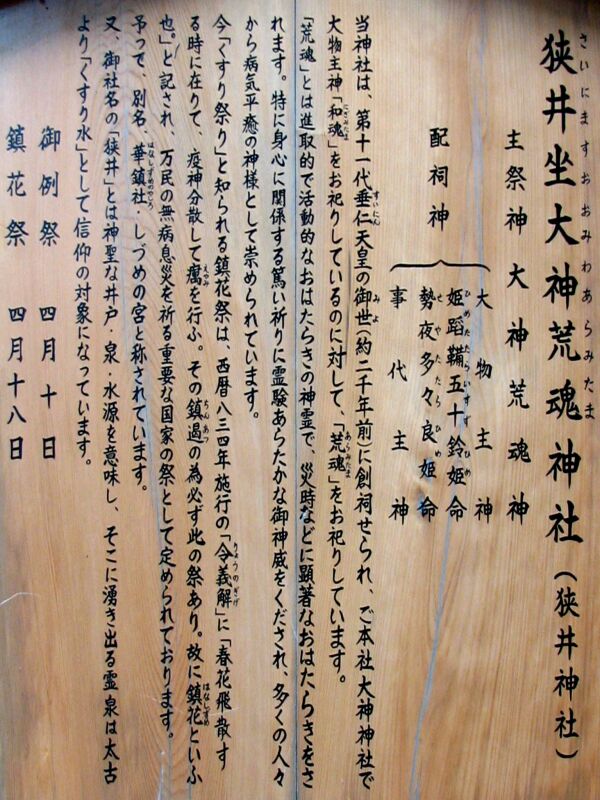 狭井坐大神荒魂神社（狭井神社）
さいにますおおみわあらみたま
主祭神 大神荒魂神
配祠神
大物主神
姫蹈鞴五十鈴姫命
ひめたたらいすずひめ
勢夜多々良姫命
せやたたらひめ
事代主神
当神社は、第十一代垂仁天皇の御世（約二千年前）に創祠せられ、ご本社大神神社で
すいにん みよ
大物主神「和魂」をお祀りしているのに対して、「荒魂」をお祀りしています。
にぎみたま あらみたま
「荒魂」とは進取的で活動的なおはたらきの神霊で、災時などに顕著なおはたらきをさ
れます。特に身心に関係する篤い祈りに霊験あらたかな御神威をくだされ、多くの人々
から病気平癒の神様として崇められています。
今「くすり祭り」と知られる鎮花祭は、西暦八三四年施行の「令義解」に「春花飛散す
りょうのぎげ
る時に在りて、疫神分散して癘を行ふ。その鎮遏の為必ず此の祭あり。故に鎮花といふ
えやみ ちんあつ はなしずめ
也。」と記され、万民の無病息災を祈る重要な国家の祭として定められております。
予って、別名・華鎮社・しづめの宮と称されています。
はなしずめのやしろ
又、御社名の「狭井」とは神聖な井戸・泉・水源を意味し、そこに湧き出る霊泉は太古
より「くすり水」として信仰の対象になっています。
御例祭 四月十日
鎮花祭 四月十八日